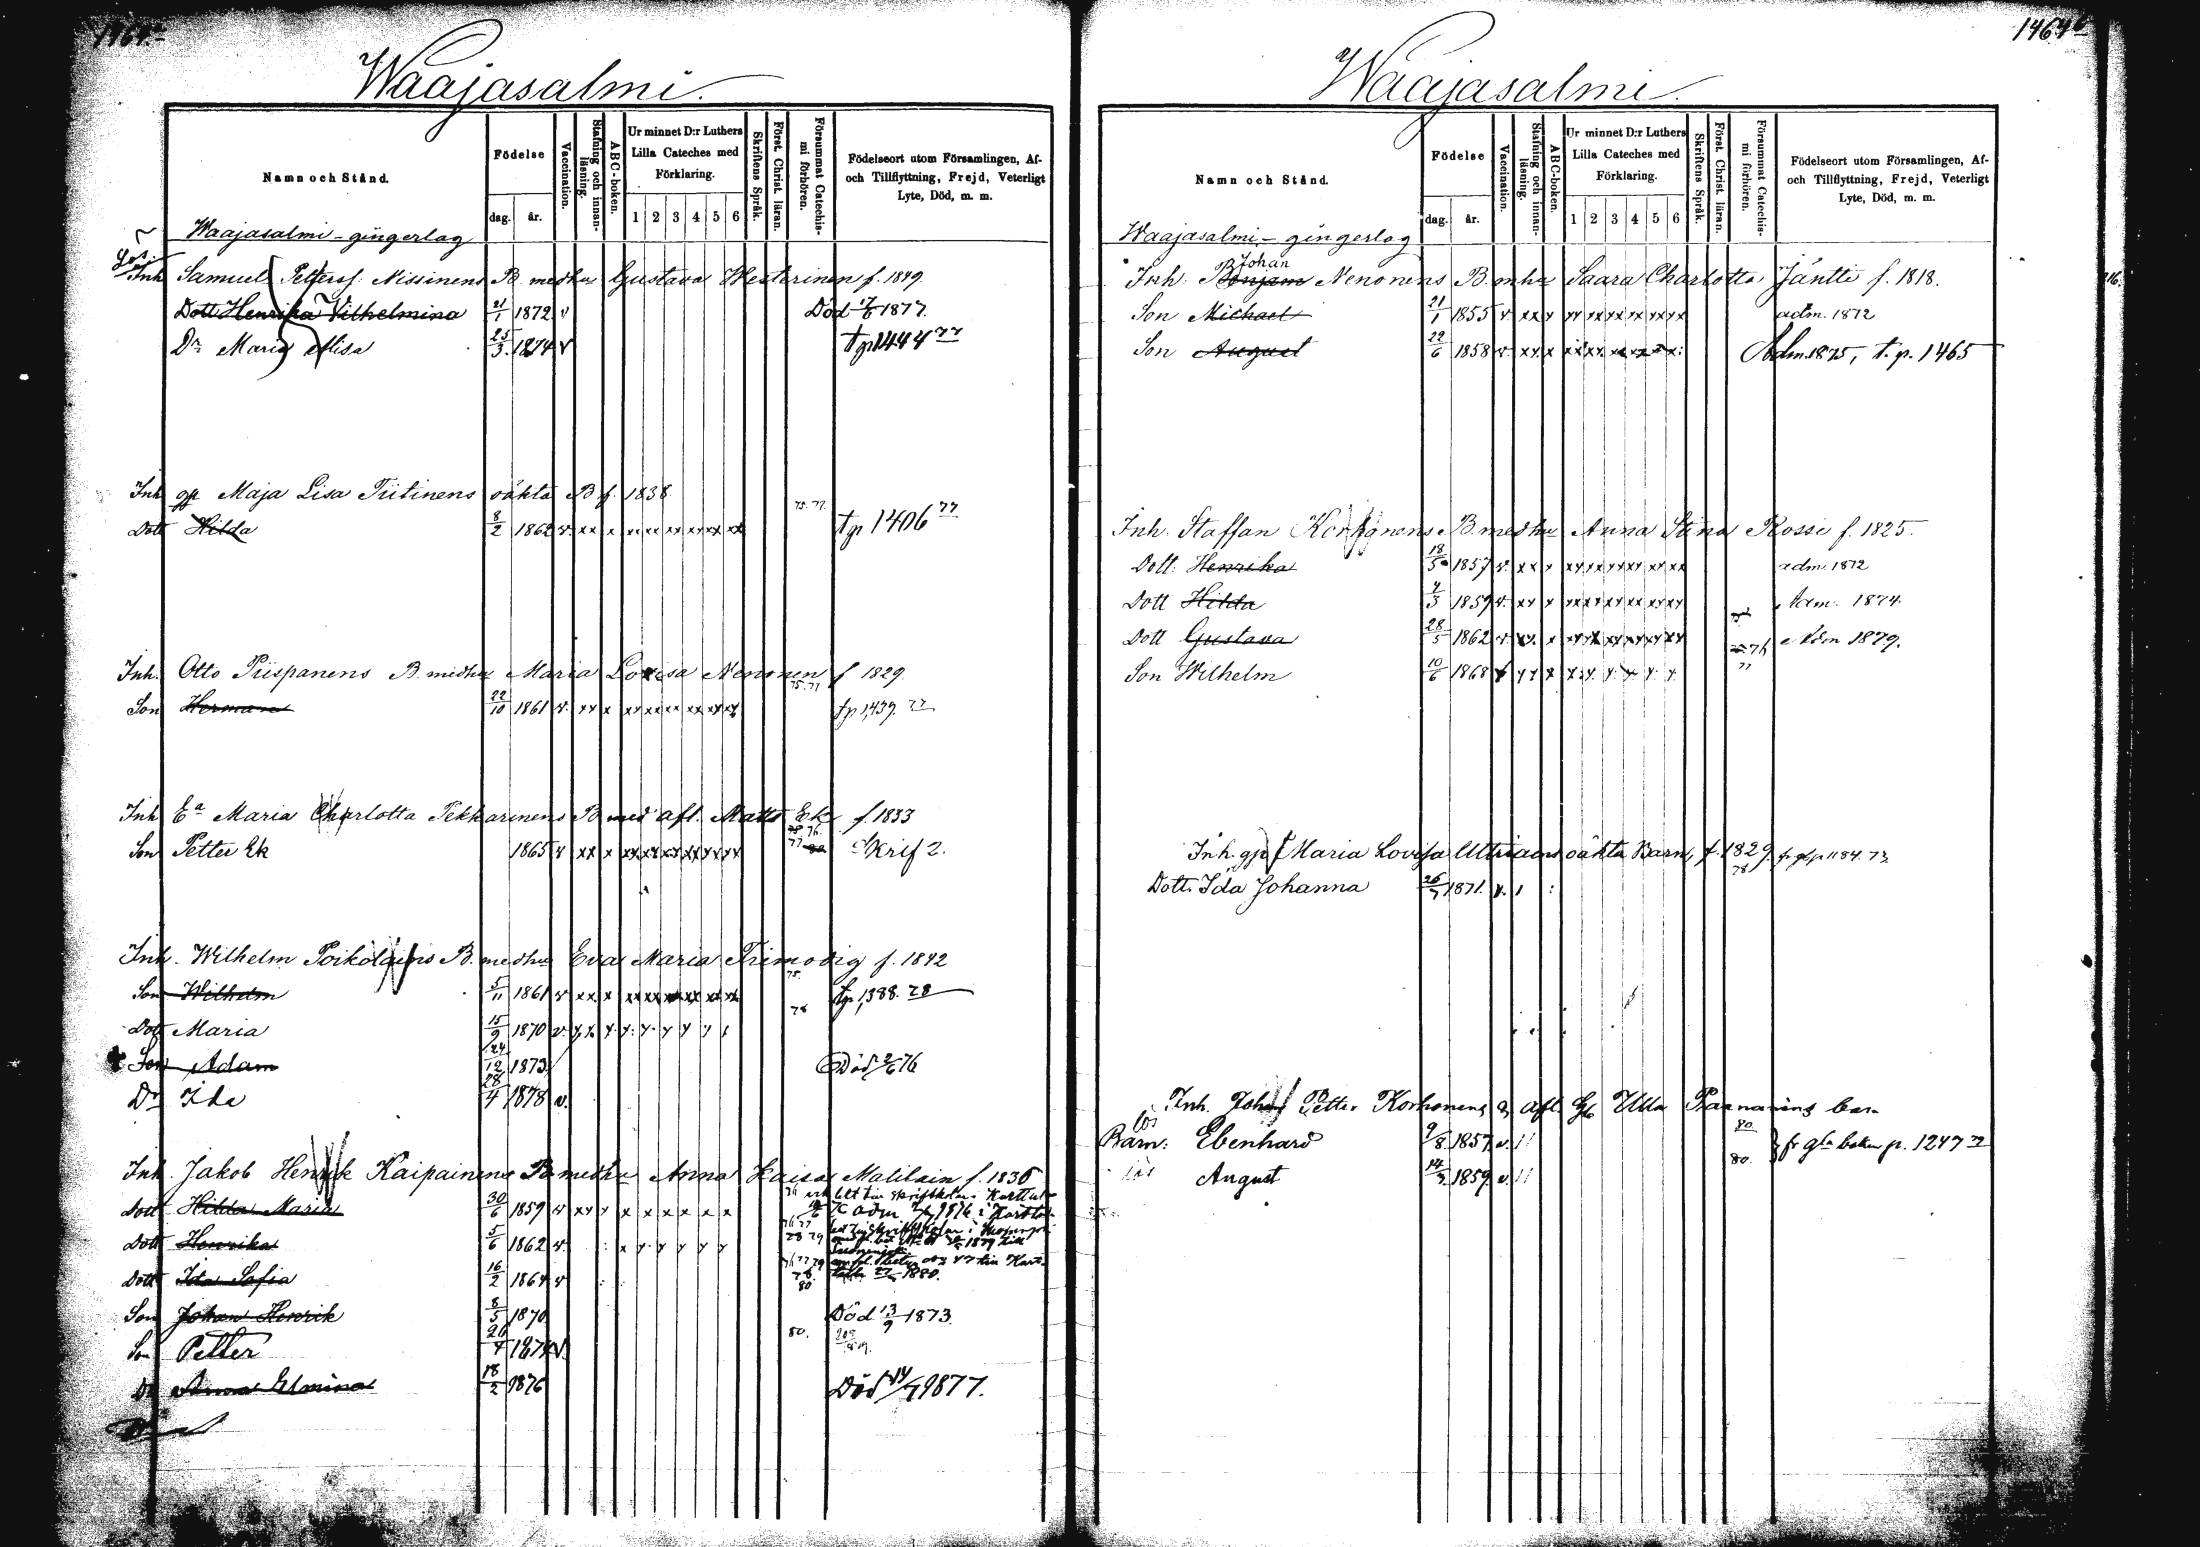 Waajasalmi.
Namn och Stånd.
Födelse
dag.
år.
Vaccination.
Stafning och innanläsning.
ABC-boken.
Ur minnet D:r Luthers Lilla Cateches med Förklaring.
1 2 3 4 5 6
Skriftens Språk.
Först. Christ. läran.
Försummat Catechismi förhören.
Födelseort utom Församlingen, Af- och Tillflyttning, Frejd, Veterligt Lyte, Död, m. m.
Waajasalmi - gingerlag
Inh Samuel Pettersf. Nissinens B. medhu Gustava Westerinen f. 1849.
Dott Henrika Vilhelmina 21/1 1872 v Död 1877.
Dr Maria Alisa 25/3 1874 v tp 1444 77
Inh gp Maja Lisa Tiitinens oäkta B f. 1838
75. 77.
Dott Hilda 8/2 1862 v. xx x xx xx xx xx xx xx tp 1406 77
Inh. Otto Piispanens B. medhu Maria Lovisa Nenonen f 1829
75. 77
Son Herman 22/10 1861 v. xx x xx xx xx xx xx xx tp 1,439. 77
Inh Ea Maria Charlotta Pekkarinens B med afl. Matts Ek f. 1833
Son Petter Ek 1865 v xx x xx xx xx xx xx xx Skrif 2.
Inh. Wilhelm Poikolainens B. medhu Eva Maria Frimodig f. 1842
75.
Son Wilhelm 5/11 1861 v xx x xx xx xx xx xx xx tp 1,388. 78
78
Dott Maria 15/9 1870 v.
Son Adam 24/12 1873 Död 2/6 76
Dr Ida 28/4 1878 v.
Inh. Jakob Henrik Kaipainens B medhu Anna Kaisa Malilain f. 1836
Dott Hilda Maria 30/6 1859 v xx x x x x x x x
Dott Henrika 5/6 1862 v.
Dott Ida Sofia 16/2 1864 v
80
Son Johan Henrik 8/5 1870 Död 13/9 1873.
Son Petter 26/4 1874 v. 80.
Dr Anna Elmina 18/2 1876 Död 14/7 1877.
1464 b
Waajasalmi.
Namn och Stånd.
Födelse
dag.
år.
Vaccination.
Stafning och innanläsning.
ABC-boken.
Ur minnet D:r Luthers Lilla Cateches med Förklaring.
1 2 3 4 5 6
Skriftens Språk.
Först. Christ. läran.
Försummat Catechismi förhören.
Födelseort utom Församlingen, Af- och Tillflyttning, Frejd, Veterligt Lyte, Död, m. m.
Waajasalmi - gingerlag
Johan
Inh. Benjam Nenonens B. mhu Saara Charlotta Jäntti f. 1818.
Son Michael 21/1 1855 v. xx x xx xx xx xx xx xx adm. 1872
Son August 22/6 1858 v. xx x xx xx xx xx xx xx Adm. 1875, t. p. 1465
Inh. Staffan Korhonens B. medhu Anna Stina Rossi f. 1825.
Dott. Henrika 18/5 1857 v. xx x xx xx xx xx xx xx adm. 1872
Dott Hilda 4/3 1859 v. xx x xx xx xx xx xx xx Adm. 1874.
Dott Gustava 28/5 1862 v xx x xx xx xx xx xx xx Adm 1879.
Son Wilhelm 10/6 1868
Inh. gp Maria Lovisa Utriains oäkta Barn, f. 1829
78
Dott. Ida Johanna 26/7 1871. v.
Inh. Johan Petter Korhonens & afl. Ulla Paananens barn
lös
Barn: Ebenhard 9/8 1857. v. 80 fr gla boken p. 1247
lös August 14/ 1859. v. 80.